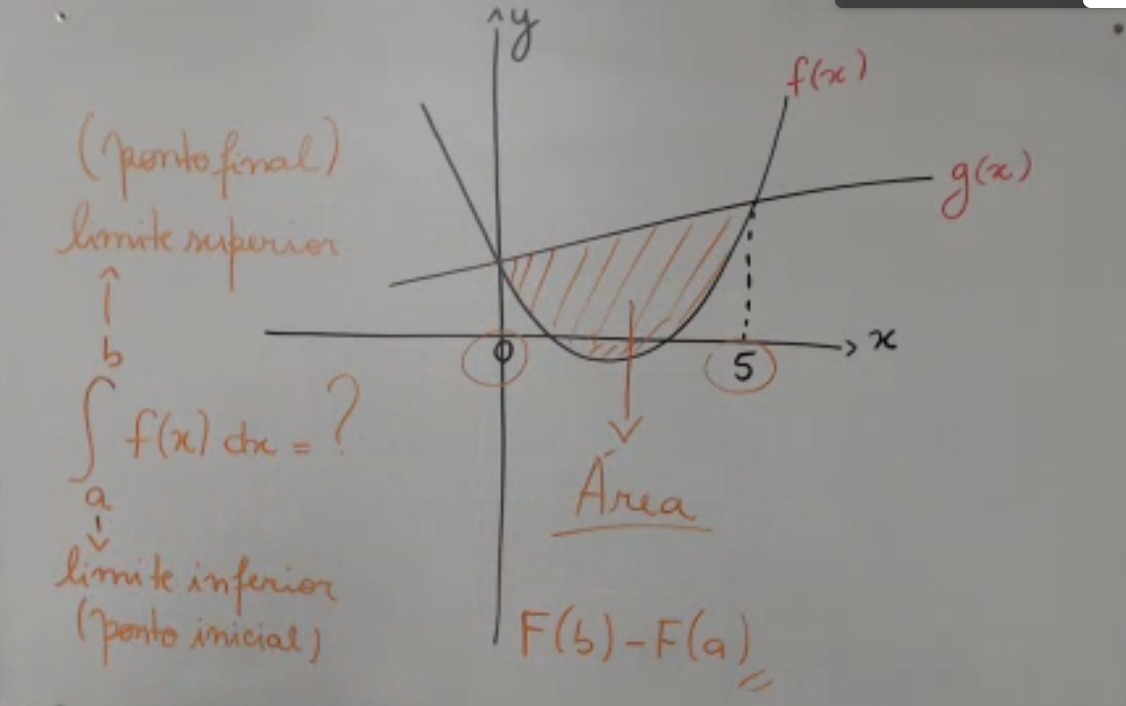 y
f(x)
g(x)
(ponto final)
limite superior
b
∫ f(x) dx = ?
a
limite inferior
(ponto inicial)
0
5
x
Área
F(b) - F(a)